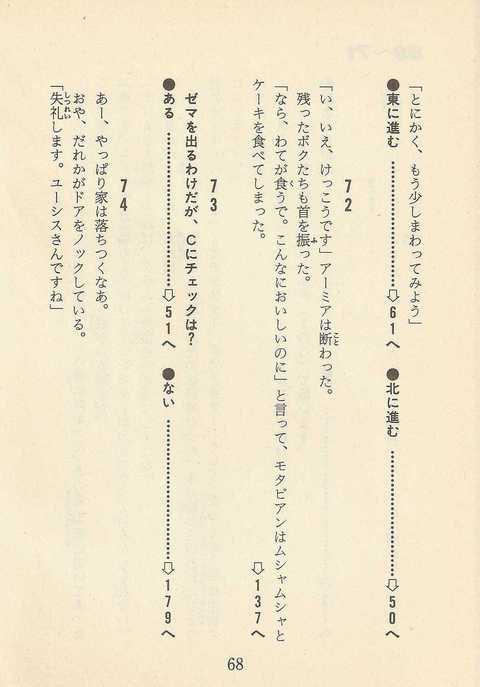 「とにかく、もう少しまわってみよう」
●東に進む……⇨61へ ●北に進む……⇨50へ
72
「い、いえ、けっこうです」アーミアは断わった。
残ったボクたちも首を振った。
「なら、わてが食うで。こんなにおいしいのに」と言って、モタビアンはムシャムシャと
ケーキを食べてしまった。 ⇨137へ
73
ゼマを出るわけだが、Cにチェックは?
●ある……⇨51へ ●ない……⇨179へ
74
あー、やっぱり家は落ちつくなあ。
おや、だれかがドアをノックしている。
「失礼します。ユーシスさんですね」
68